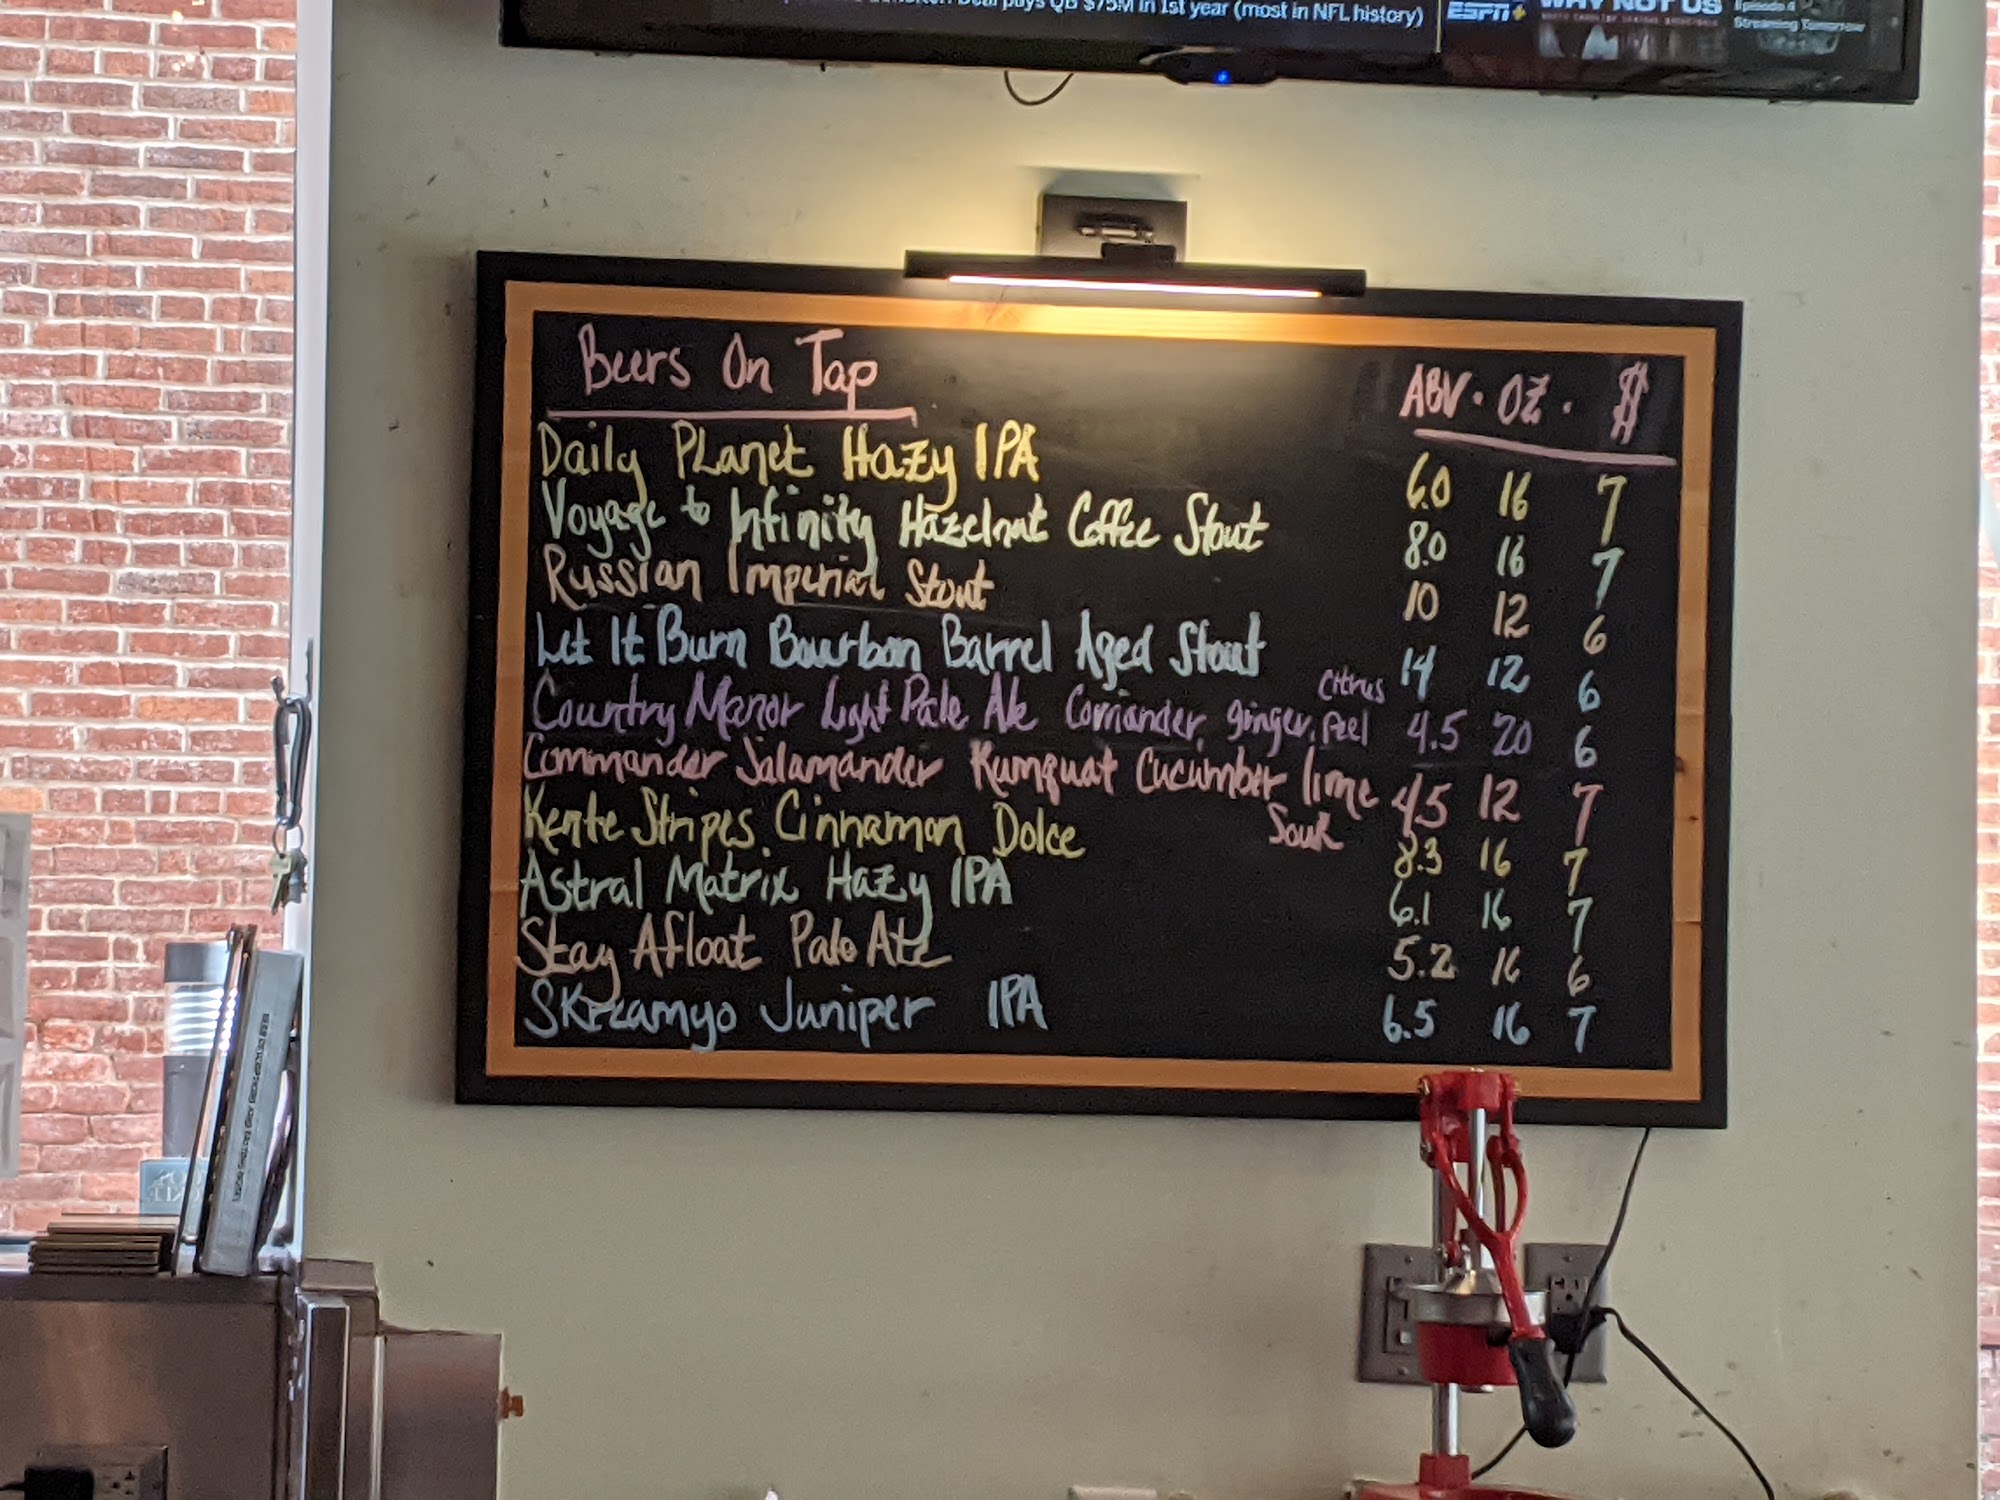 pays QB $75M in 1st year (most in NFL history)
ESPN+
WHY NOT US
Episode 4
Streaming Tomorrow
Beers On Tap ABV. OZ. $
Daily Planet Hazy IPA 6.0 16 7
Voyage to Infinity Hazelnut Coffee Stout 8.0 16 7
Russian Imperial Stout 10 12 6
Let It Burn Bourbon Barrel Aged Stout 14 12 6
Country Manor Light Pale Ale Corriander, ginger, Citrus Peel 4.5 20 6
Commander Salamander Kumquat Cucumber lime Sour 4.5 12 7
Kente Stripes Cinnamon Dolce 8.3 16 7
Astral Matrix Hazy IPA 6.1 16 7
Stay Afloat Pale Ale 5.2 16 6
SKreamyo Juniper IPA 6.5 16 7